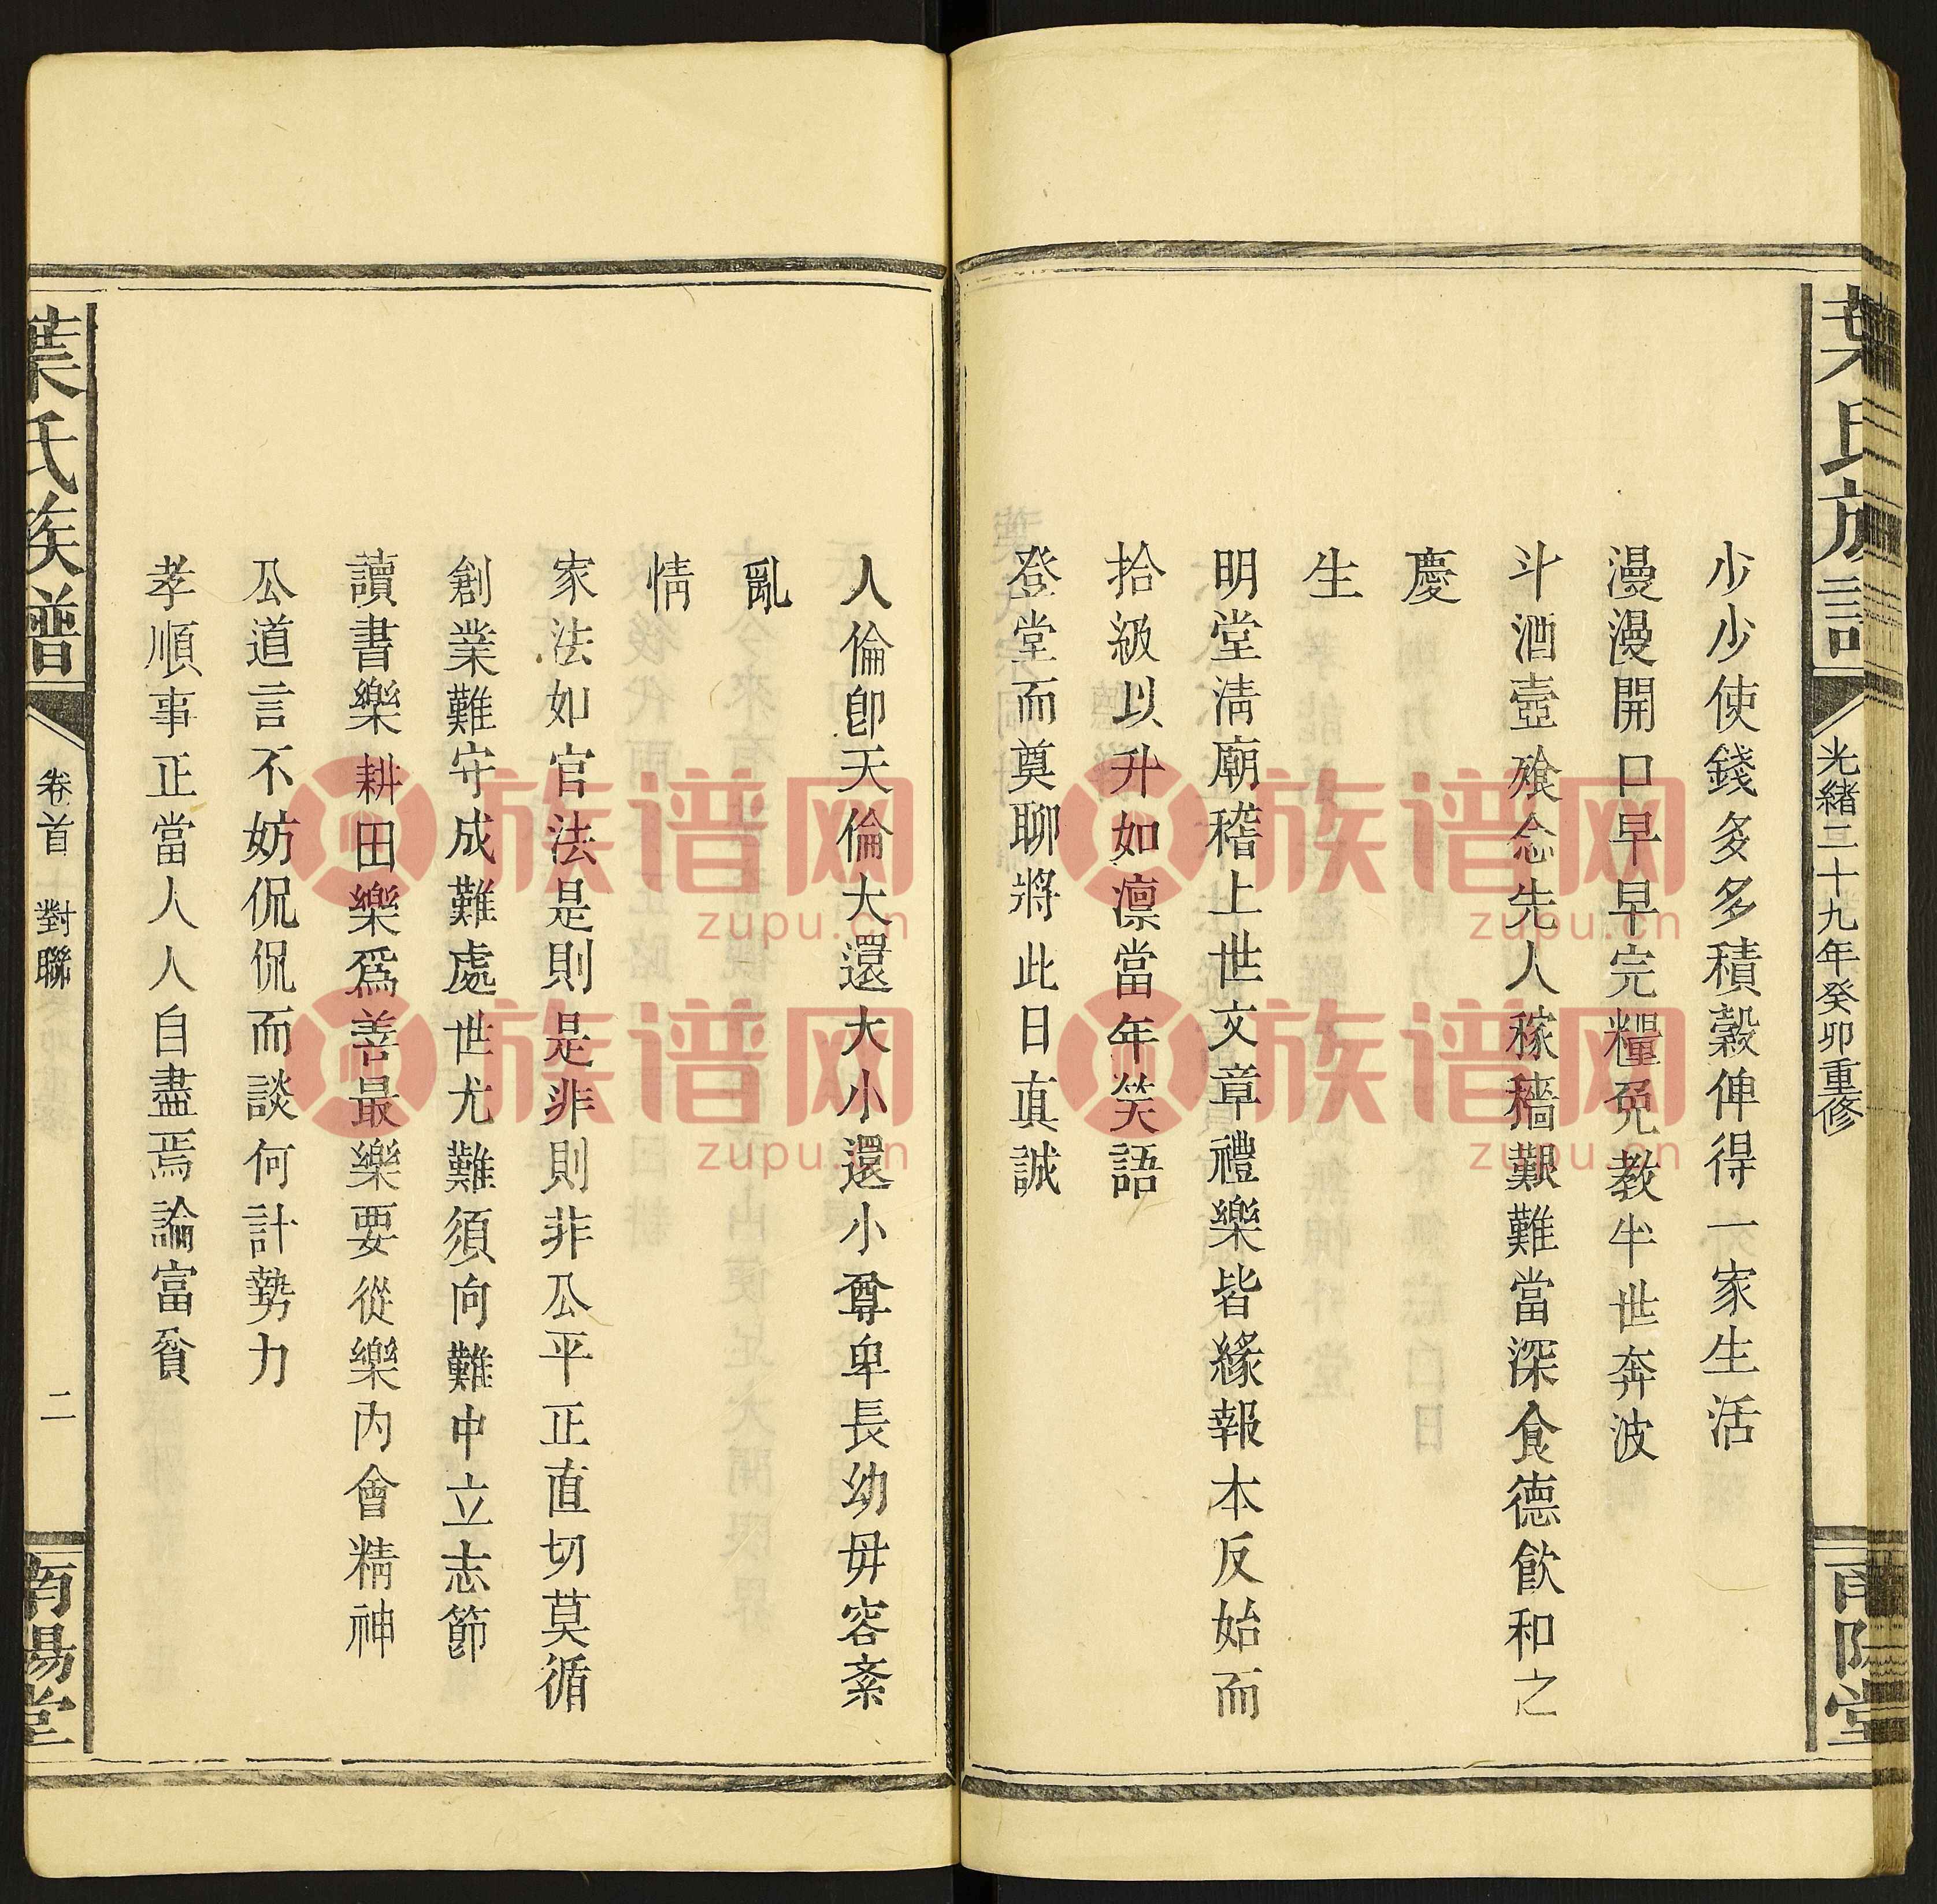 葉氏族譜
光緒二十九年癸卯重修
南陽堂
少少使錢多多積穀俾得一家生活
漫漫開口早早完糧免教半世奔波
斗酒壺飱念先人稼穡艱難當深食德飲和之
慶
生
明堂淸廟稽上世文章禮樂皆緣報本反始而
拾級以升如凛當年笑語
登堂而奠聊將此日眞誠
人倫卽天倫大還大小還小尊卑長幼毋容紊
亂
情
家法如官法是則是非則非公平正直切莫循
創業難守成難處世尤難須向難中立志節
讀書樂耕田樂爲善最樂要從樂內會精神
公道言不妨侃侃而談何計勢力
孝順事正當人人自盡焉論富貧
葉氏族譜
卷首 對聯
二
南陽堂
族谱网
zupu.cn
族谱网
zupu.cn
族谱网
zupu.cn
族谱网
zupu.cn